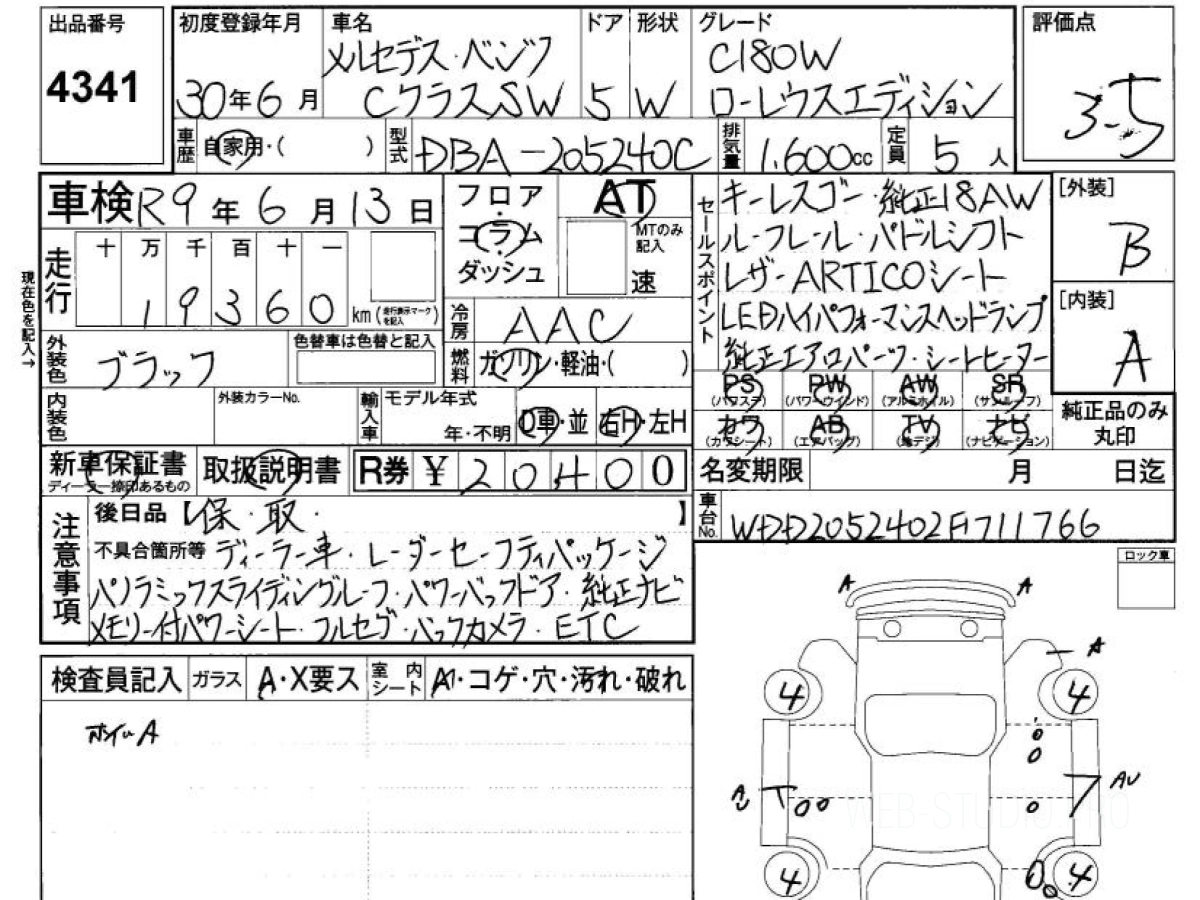 出品番号
4341
初度登録年月
30年6月
車名
メルセデス・ベンツ
CクラスSW
ドア
5
形状
W
グレード
C180W
ローレウスエディション
評価点
3.5
車歴 自家用・( )
型式 DBA-205240C
排気量 1,600cc
定員 5人
車検 R9年6月13日
フロア・コラム・ダッシュ
AT
MTのみ記入
速
現在色を記入→
走行
十 万 千 百 十 一
19360 km (走行表示マークを記入)
冷房 AAC
外装色 ブラック
色替車は色替と記入
燃料 ガソリン・軽油・( )
内装色
外装カラーNo.
輸入車
モデル年式
年・不明
D車・並
右H・左H
セールスポイント
キーレスゴー・純正18AW
ルーフレール・パドルシフト
レザーARTICOシート
LEDハイパフォーマンスヘッドランプ
純正エアロパーツ・シートヒーター
PS (パワステ) PW (パワーウインド) AW (アルミホイル) SR (サンルーフ)
カワ (カワシート) AB (エアバッグ) TV (地デジ) ナビ (ナビゲーション)
[外装]
B
[内装]
A
純正品のみ丸印
新車保証書
ディーラー捺印あるもの
取扱説明書
R券 ¥20400
名変期限 月 日迄
車台No. WDD2052402F711766
注意事項
後日品【保・取・ 】
不具合箇所等 ディーラー車・レーダーセーフティパッケージ
パノラミックスライディングルーフ・パワーバックドア・純正ナビ
メモリー付パワーシート・フルセグ・バックカメラ・ETC
ロック車
検査員記入 ガラス A・X要ス 室内シート A1・コゲ・穴・汚れ・破れ
ホイールA
A A
A
4 4
A AU
4 4
WEB-STUDIO.PRO